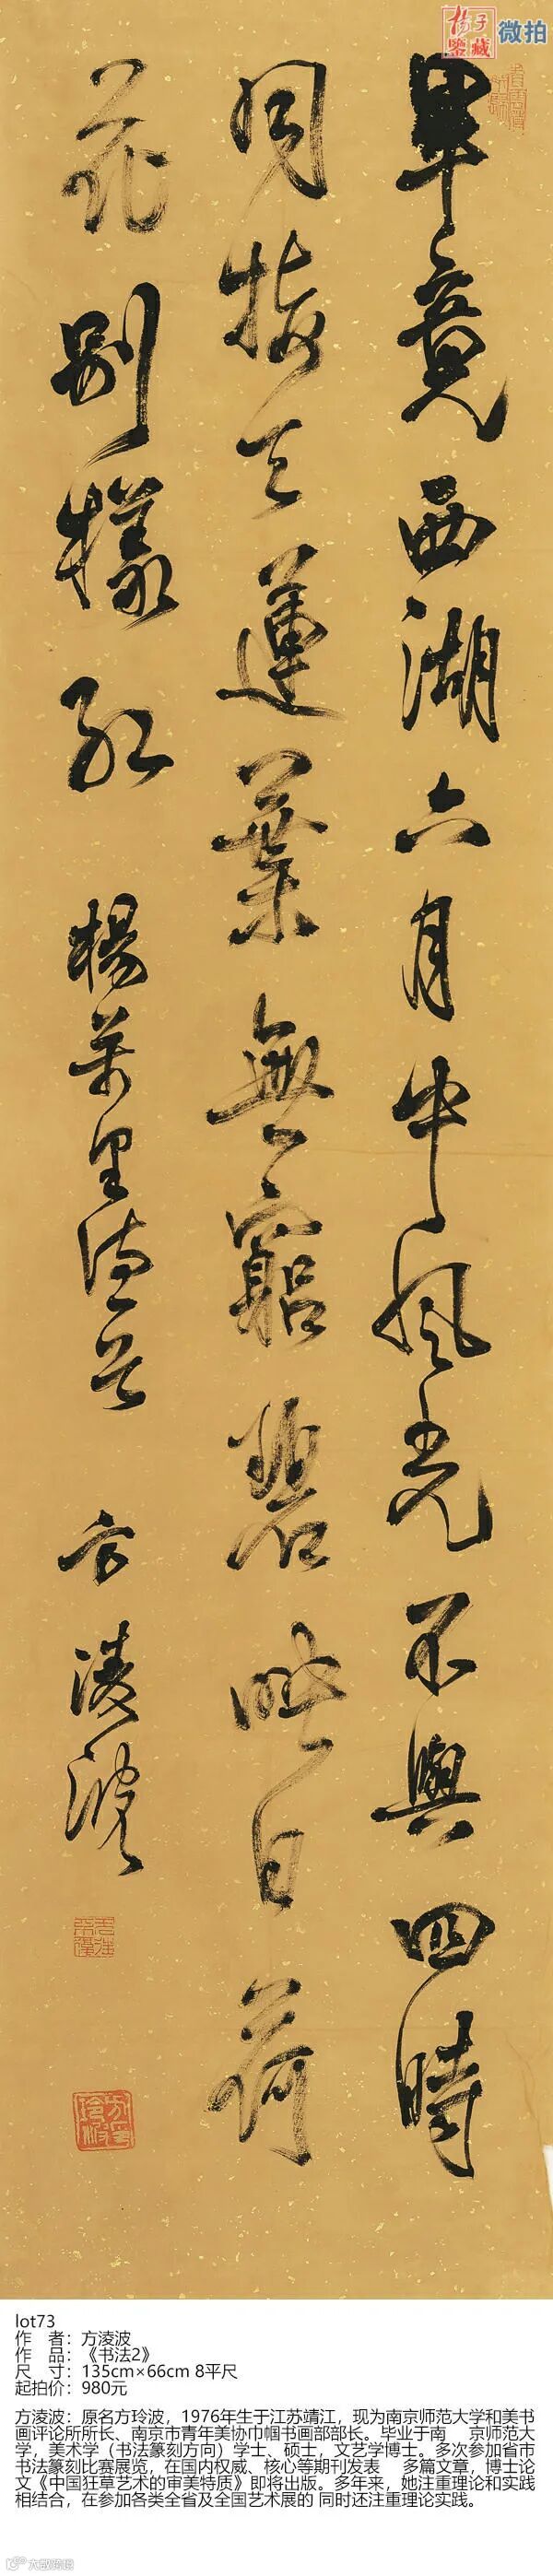 杨子
鉴藏
微拍
畢竟西湖六月中風光不與四時
同接天蓮葉無窮碧映日荷
花别樣紅 楊萬里
方淩波
lot73
作 者：方淩波
作 品：《书法2》
尺 寸：135cm×66cm 8平尺
起拍价：980元
方淩波：原名方玲波，1976年生于江苏靖江，现为南京师范大学和美书
画评论所所长、南京市青年美协巾帼书画部部长。毕业于南 京师范大
学，美术学（书法篆刻方向）学士、硕士，文艺学博士。多次参加省市
书法篆刻比赛展览，在国内权威、核心等期刊发表 多篇文章，博士论
文《中国狂草艺术的审美特质》即将出版。多年来，她注重理论和实践
相结合，在参加各类全省及全国艺术展的 同时还注重理论实践。